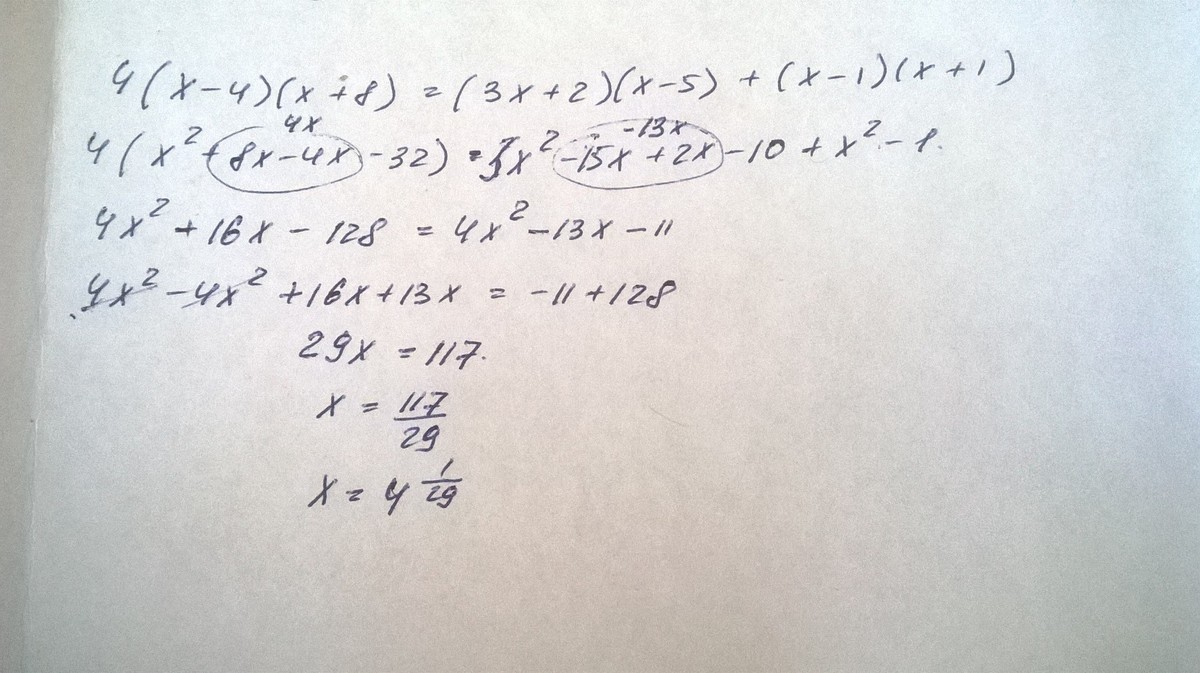 4(x-4)(x+8) = (3x+2)(x-5) + (x-1)(x+1)
4x -13x
4(x² + 8x-4x -32) = 3x² -15x+2x -10 + x² - 1.
4x² + 16x - 128 = 4x² - 13x - 11
4x² - 4x² + 16x + 13x = -11 + 128
29x = 117.
x = 117/29
x = 4 1/29